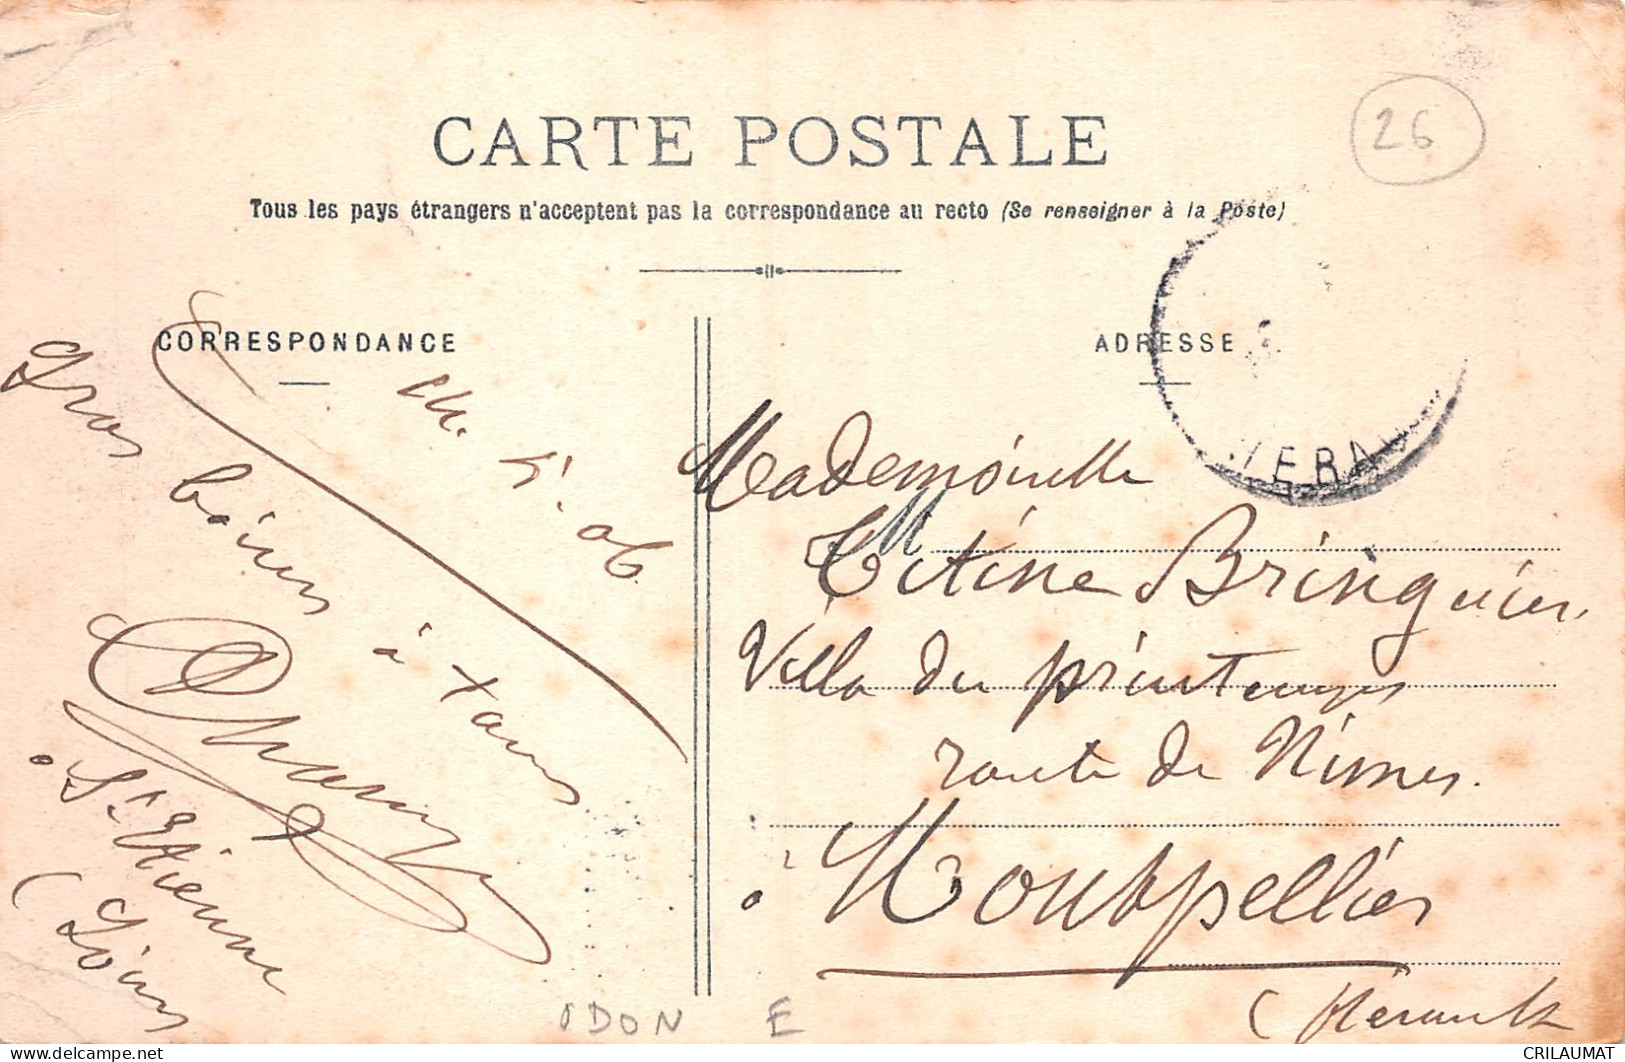 CARTE POSTALE
26
Tous les pays étrangers n'acceptent pas la correspondance au recto (Se renseigner à la Poste)
CORRESPONDANCE
ADRESSE
HERAU
Ch. 5'. 06
Gros
à tous
St Etienne
(Loire
Mademoiselle
Titine Bringuier
Villa du printemps
route de Nimes.
à Montpellier
(Hérault
ODON E
CRILAUMAT